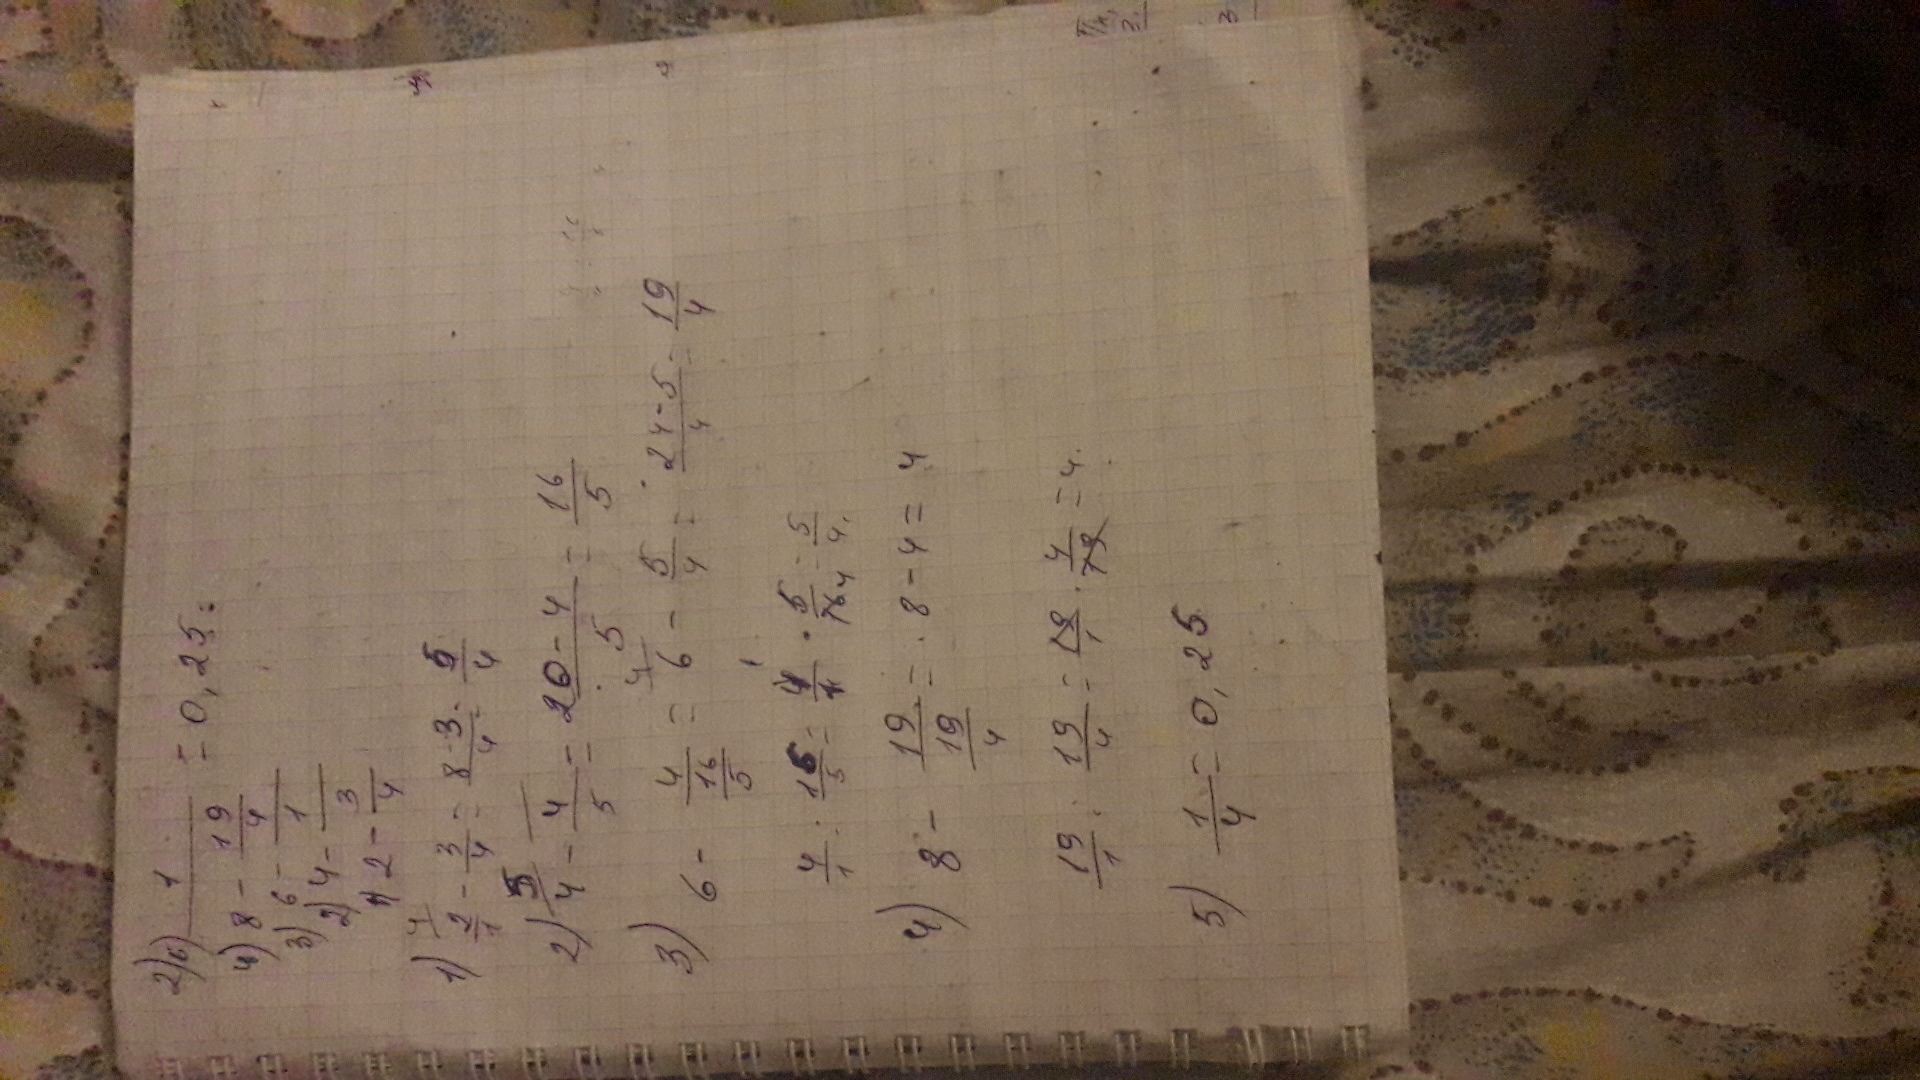 2) б) 1 = 0,25.
4) 8 - 19/4
3) 6 - 1
2) 4 - 3
1) 2 - 3/4
1) 2/1 - 3/4 = 8-3/4 = 5/4
2) 4 - 4/5 = 20-4/5 = 16/5
3) 6 - 4/(16/5) = 6 - 5/4 = 24-5/4 = 19/4
4/1 : 16/5 = 4/1 · 5/16 = 5/4.
4) 8 - 19/(19/4) = 8-4=4
19/1 : 19/4 = 19/1 · 4/19 = 4.
5) 1/4 = 0,25